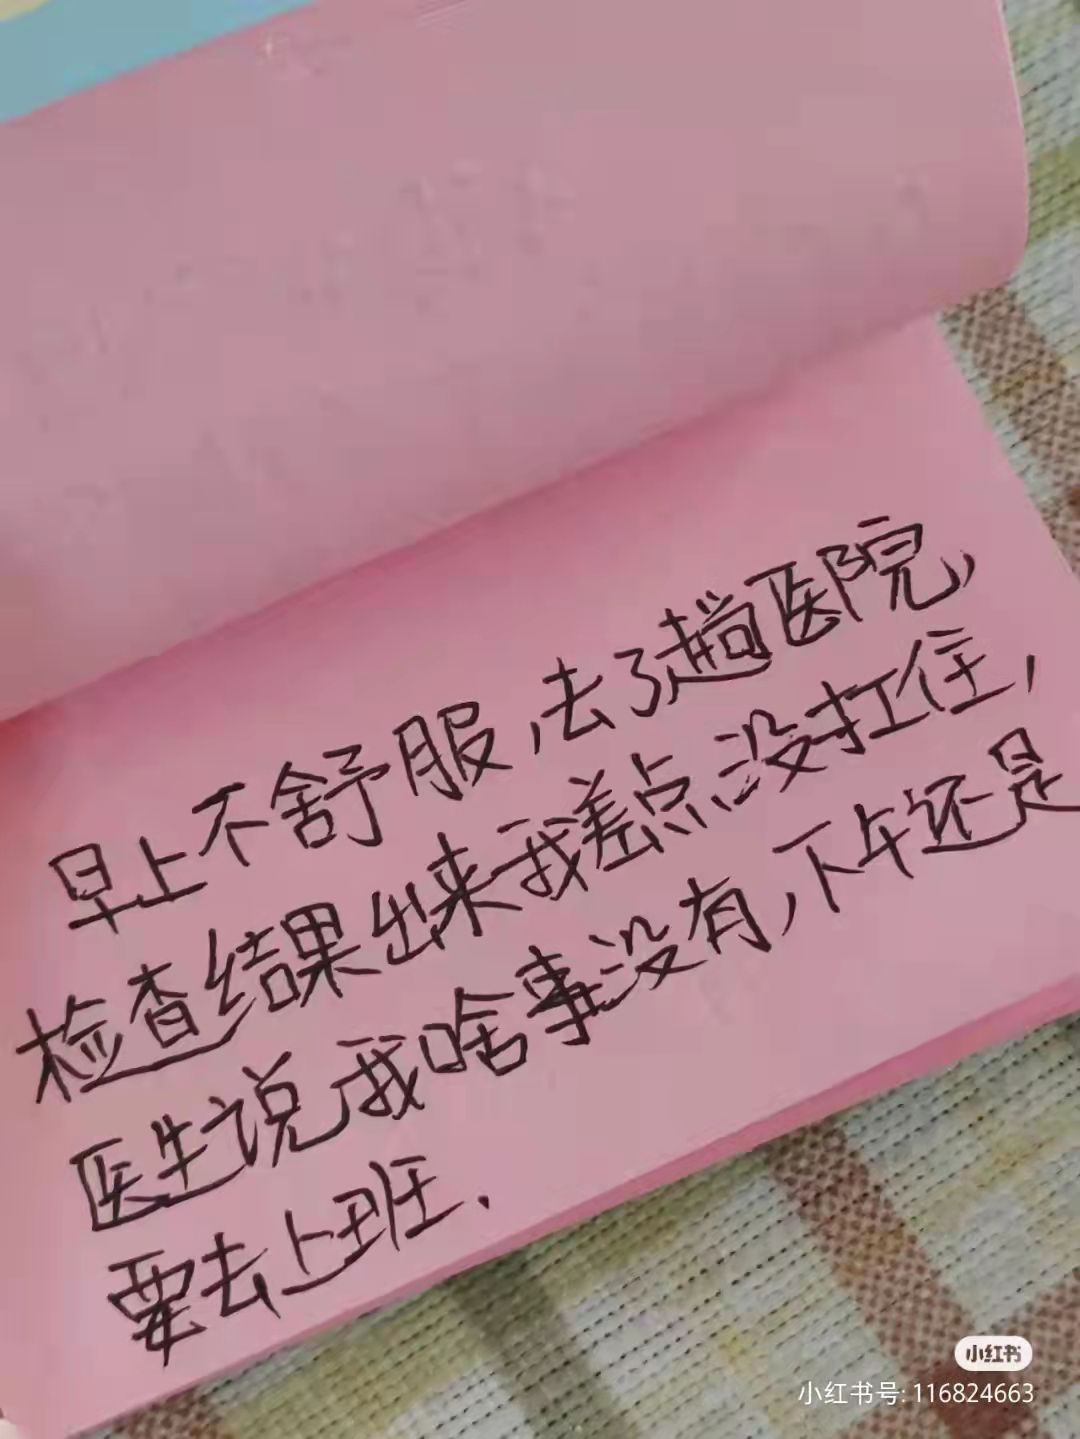 早上不舒服,去了趟医院,
检查结果出来我差点没扛住,
医生说我啥事没有,下午还是
要去上班.
小红书
小红书号: 116824663